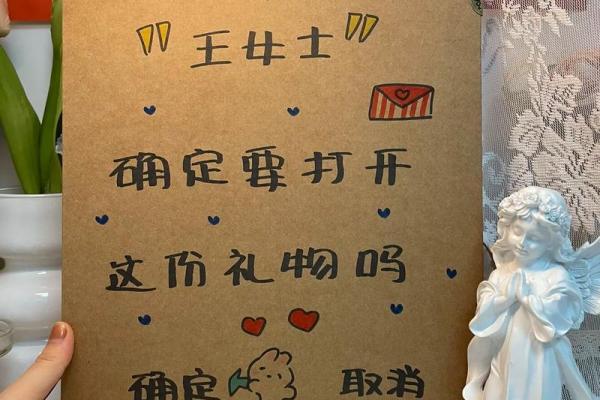 "王女士"
确定要打开
这份礼物吗
确定 取消